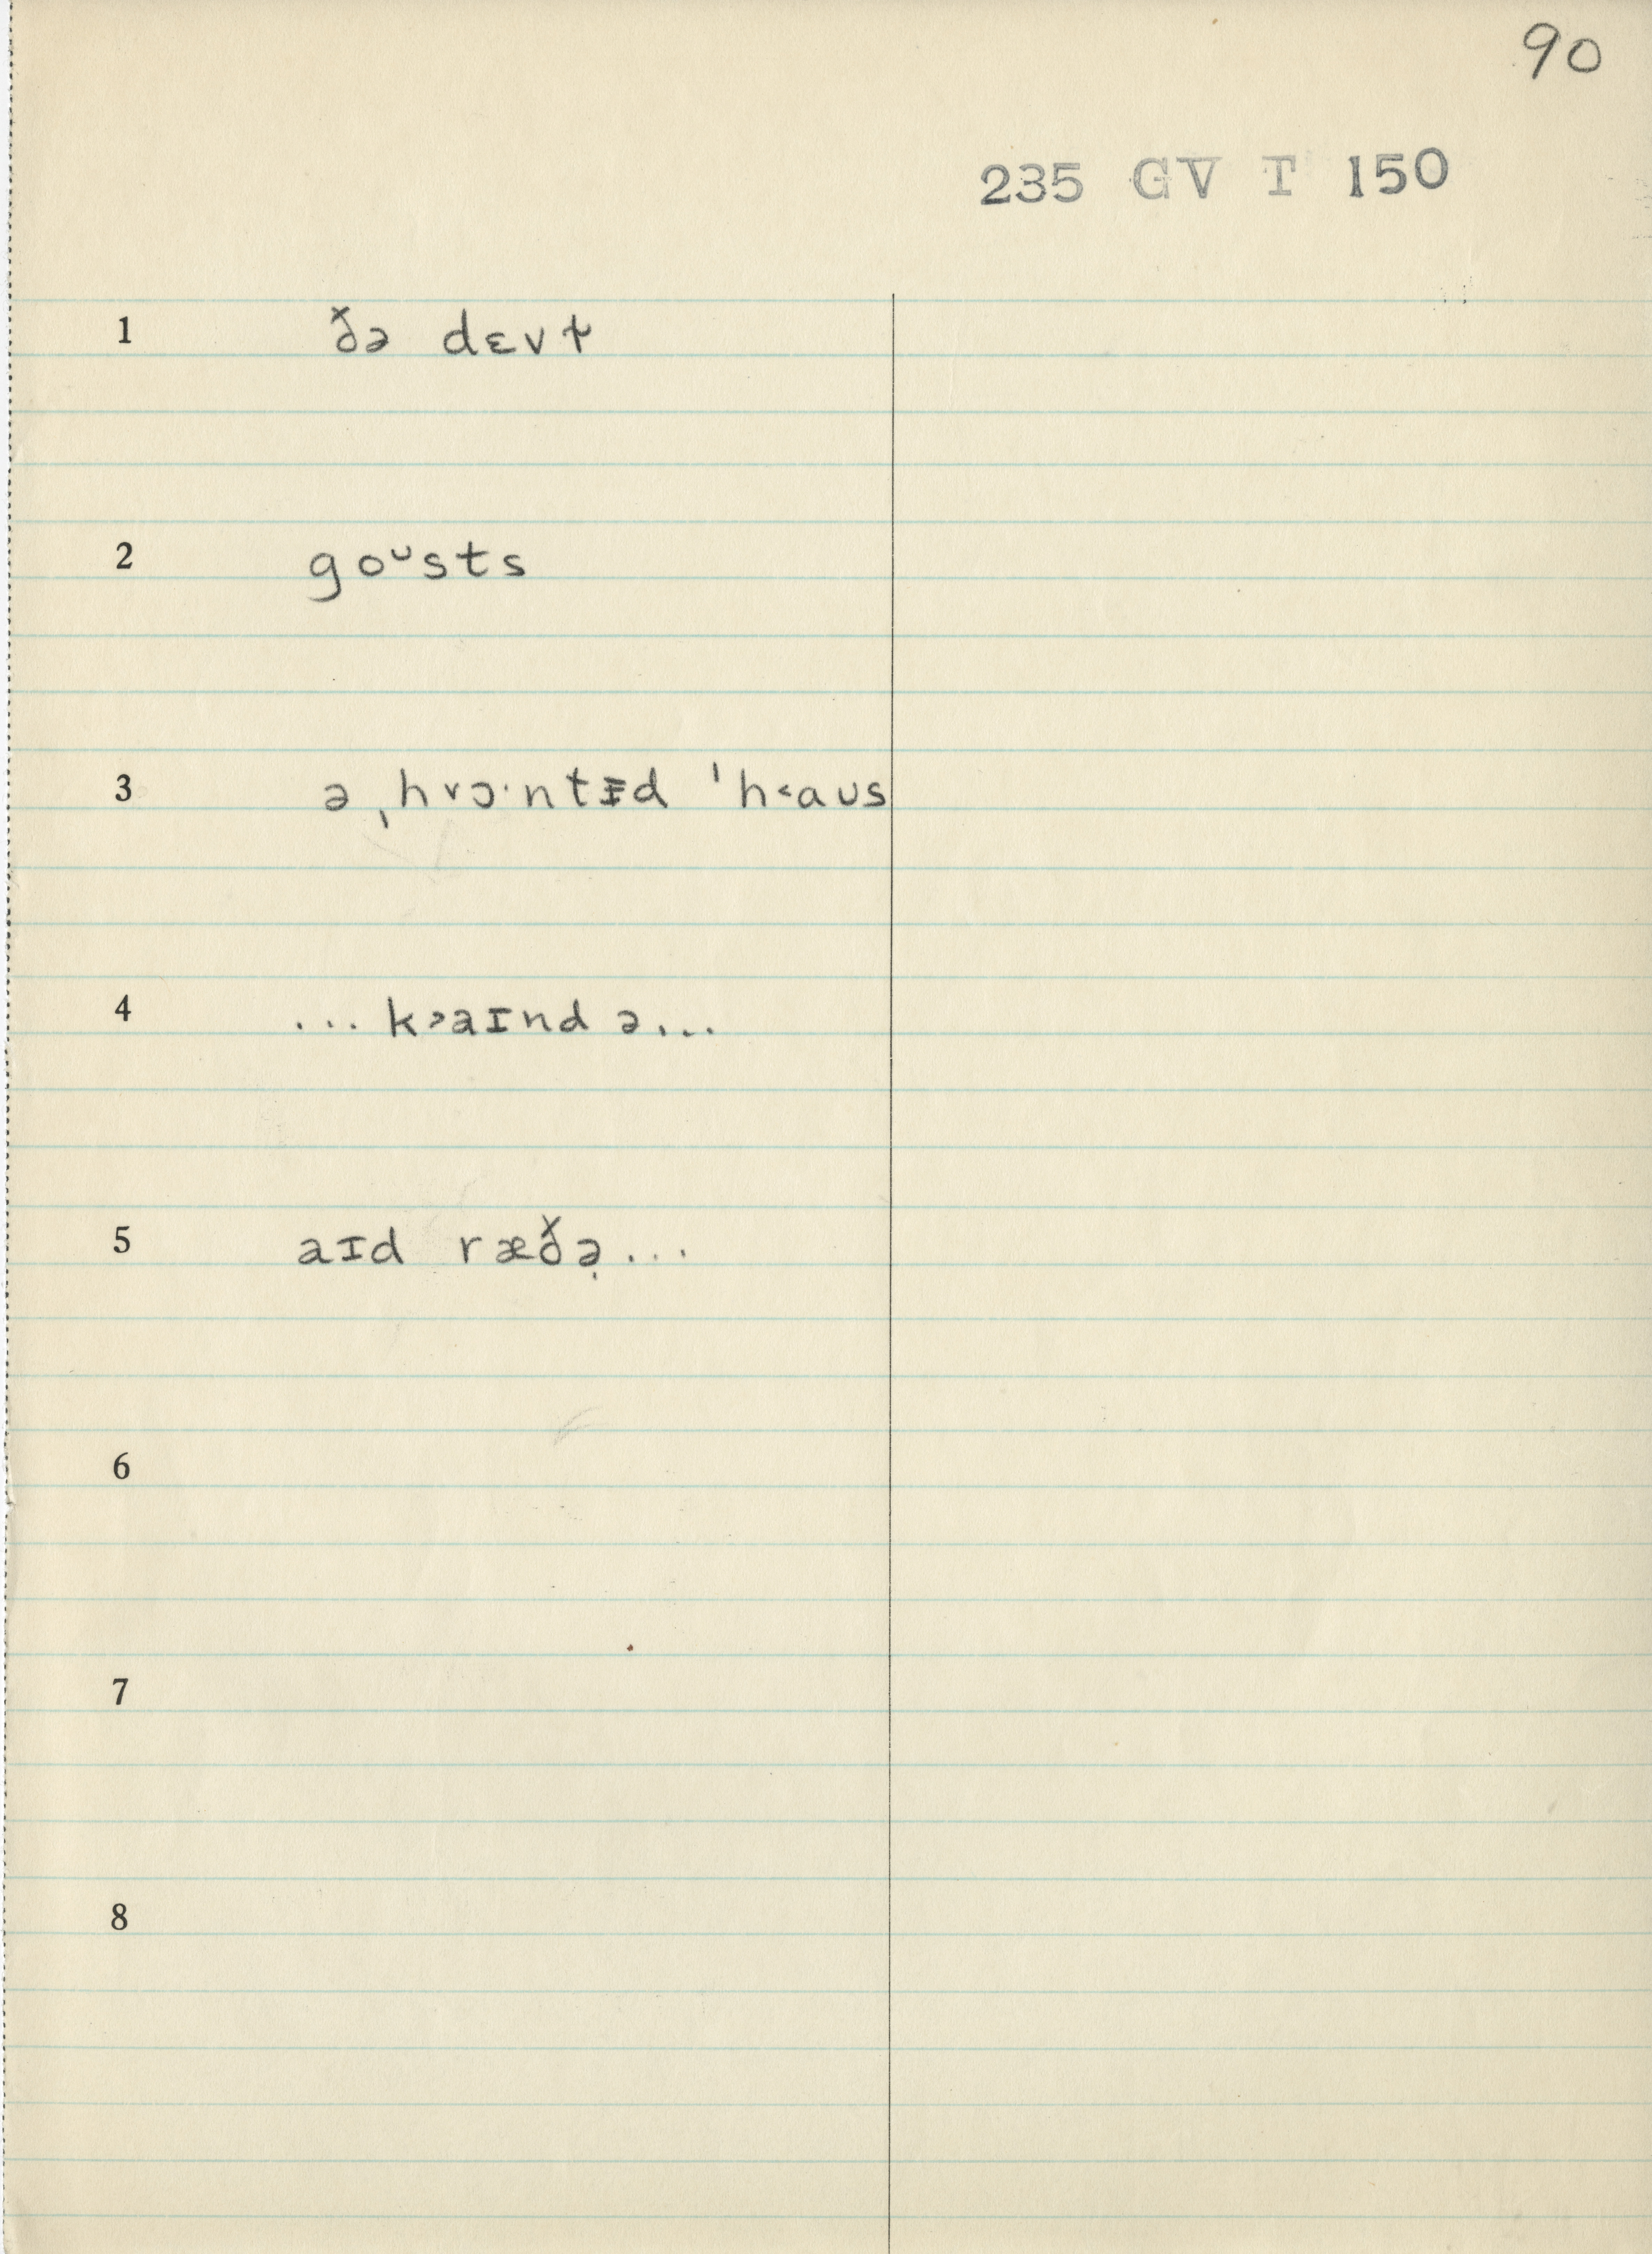 90
235 GV T 150
1 ðə dɛvɫ
2 goᴗsts
3 ə ˌh˅ɔ·ntɪ̵d ˈh˂aᴜs
4 ... k˃aɪnd ə...
5 aɪd ræðə̣...
6
7
8